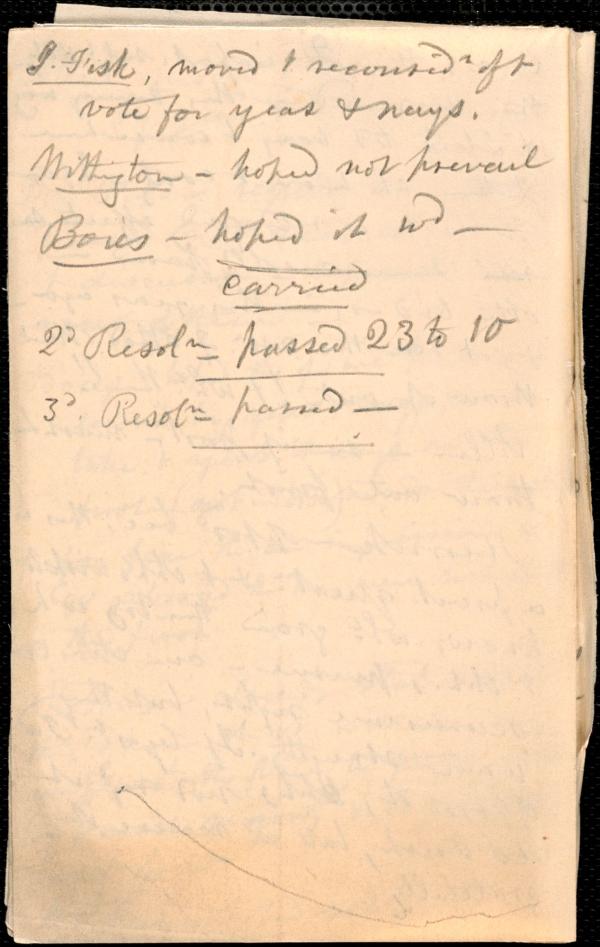 J. Fisk, moved t reconsidn of t
vote for yeas & nays.
Whittington – hoped not prevail
Boies – hoped it wd —
carried
2d Resoln – passed 23 to 10
3d. Resoln passed —